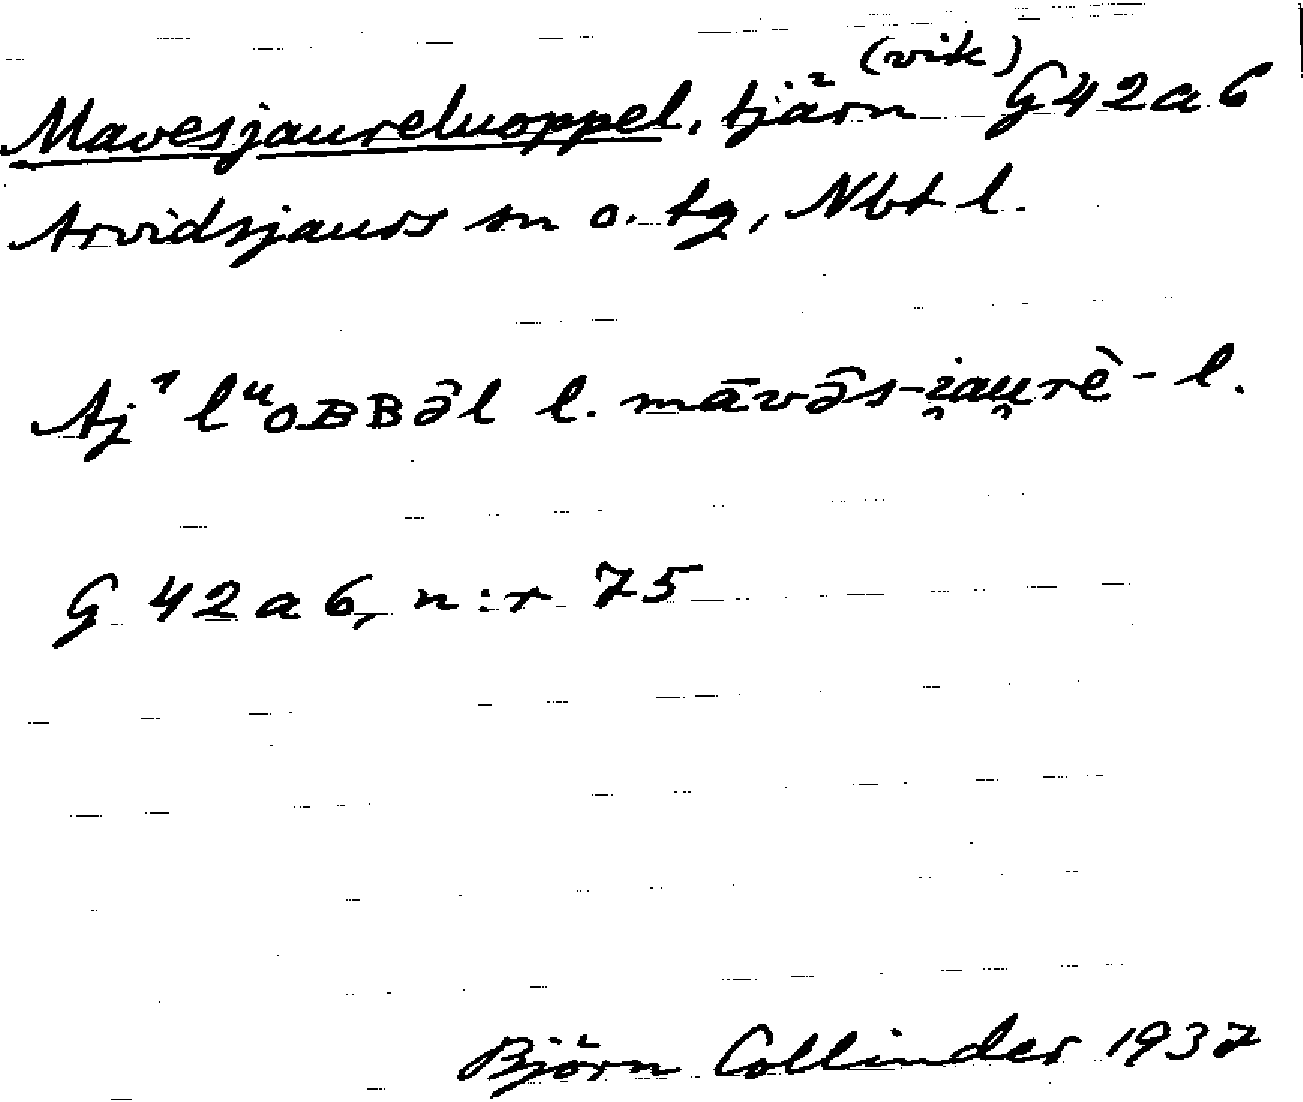 Mavesjaureluoppel, tjärn (vik) G42a6
Arvidsjaurs sn o. tg, Nbt l.
Aj¹ lᵘoʙʙə̑l l. māvə̑s-i̯au̯rè - l.
G 42 a 6, n:r 75
Björn Collinder 1937